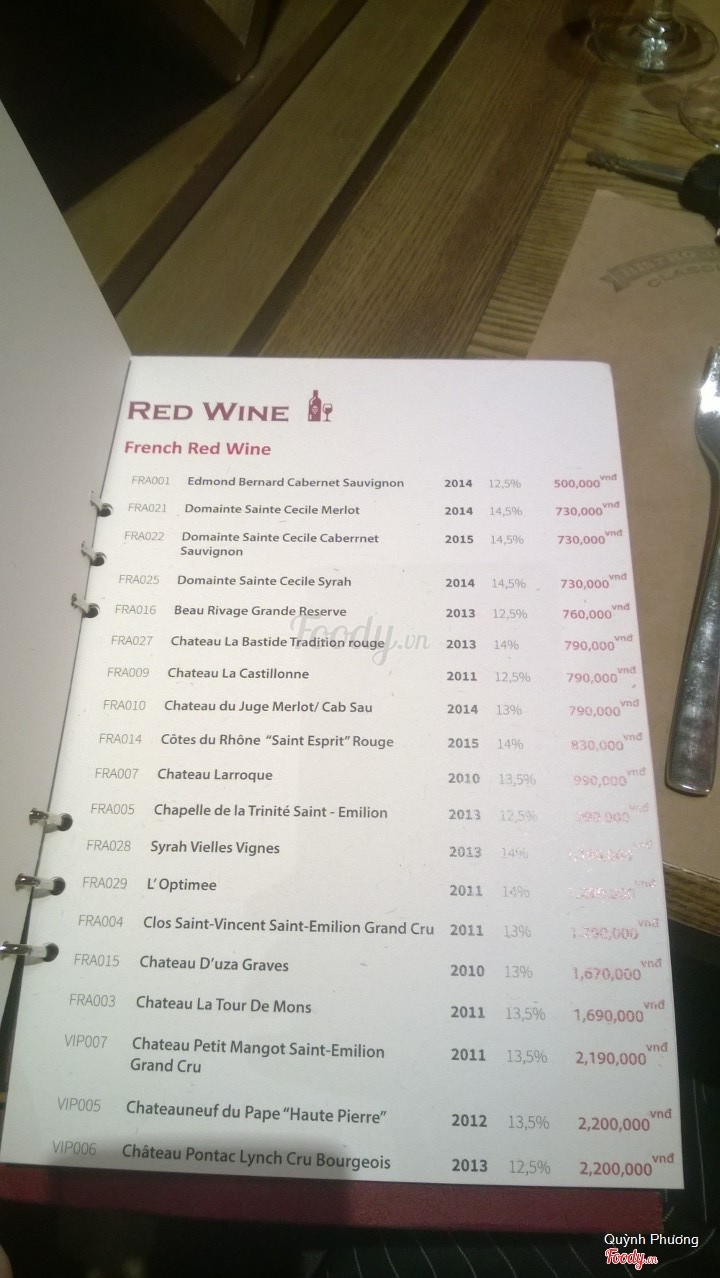 CLASS
RED WINE
French Red Wine
FRA001 Edmond Bernard Cabernet Sauvignon 2014 12,5% 500,000vnđ
FRA021 Domainte Sainte Cecile Merlot 2014 14,5% 730,000vnđ
FRA022 Domainte Sainte Cecile Caberrnet 2015 14,5% 730,000vnđ
Sauvignon
FRA025 Domainte Sainte Cecile Syrah 2014 14,5% 730,000vnđ
FRA016 Beau Rivage Grande Reserve 2013 12,5% 760,000vnđ
FRA027 Chateau La Bastide Tradition rouge 2013 14% 790,000vnđ
Foody.vn
FRA009 Chateau La Castillonne 2011 12,5% 790,000vnđ
FRA010 Chateau du Juge Merlot/ Cab Sau 2014 13% 790,000vnđ
FRA014 Côtes du Rhône "Saint Esprit" Rouge 2015 14% 830,000vnđ
FRA007 Chateau Larroque 2010 13,5% 990,000vnđ
FRA005 Chapelle de la Trinité Saint - Emilion 2013 12,5%
FRA028 Syrah Vielles Vignes 2013 14%
FRA029 L'Optimee 2011 14%
FRA004 Clos Saint-Vincent Saint-Emilion Grand Cru 2011 13%
FRA015 Chateau D'uza Graves 2010 13% 1,670,000vnđ
FRA003 Chateau La Tour De Mons 2011 13,5% 1,690,000vnđ
VIP007 Chateau Petit Mangot Saint-Emilion 2011 13,5% 2,190,000vnđ
Grand Cru
VIP005 Chateauneuf du Pape "Haute Pierre" 2012 13,5% 2,200,000vnđ
VIP006 Château Pontac Lynch Cru Bourgeois 2013 12,5% 2,200,000vnđ
Quỳnh Phương
Foody.vn